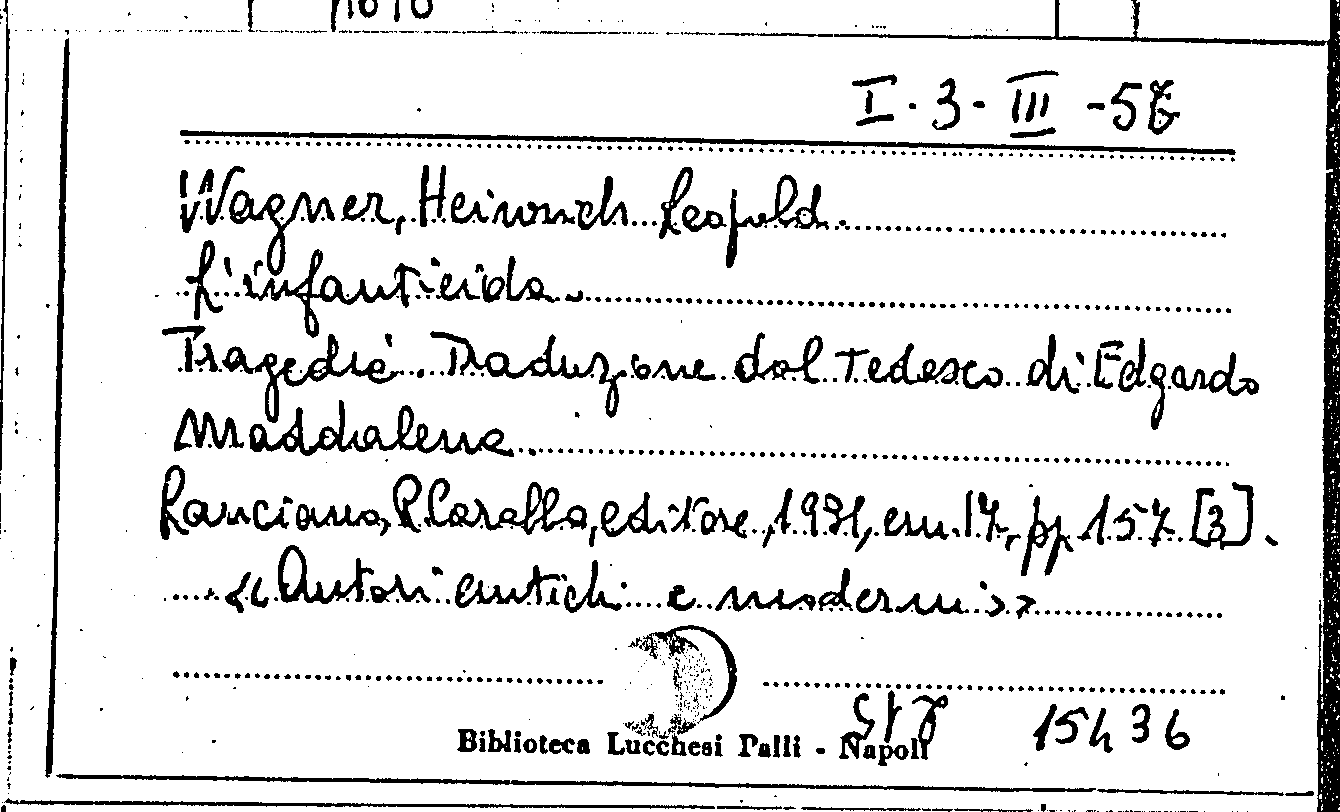 I. 3 - III - 5
Wagner, Heinrich Leopold.
L'infanticida.
Tragedia. Traduzione dal tedesco di Edgardo
Maddalena
Lanciano, R. Carabba, editore, 1931, cm. 17, pp. 157 [3].
«Autori antichi e moderni»
15436
Biblioteca Lucchesi Palli - Napoli